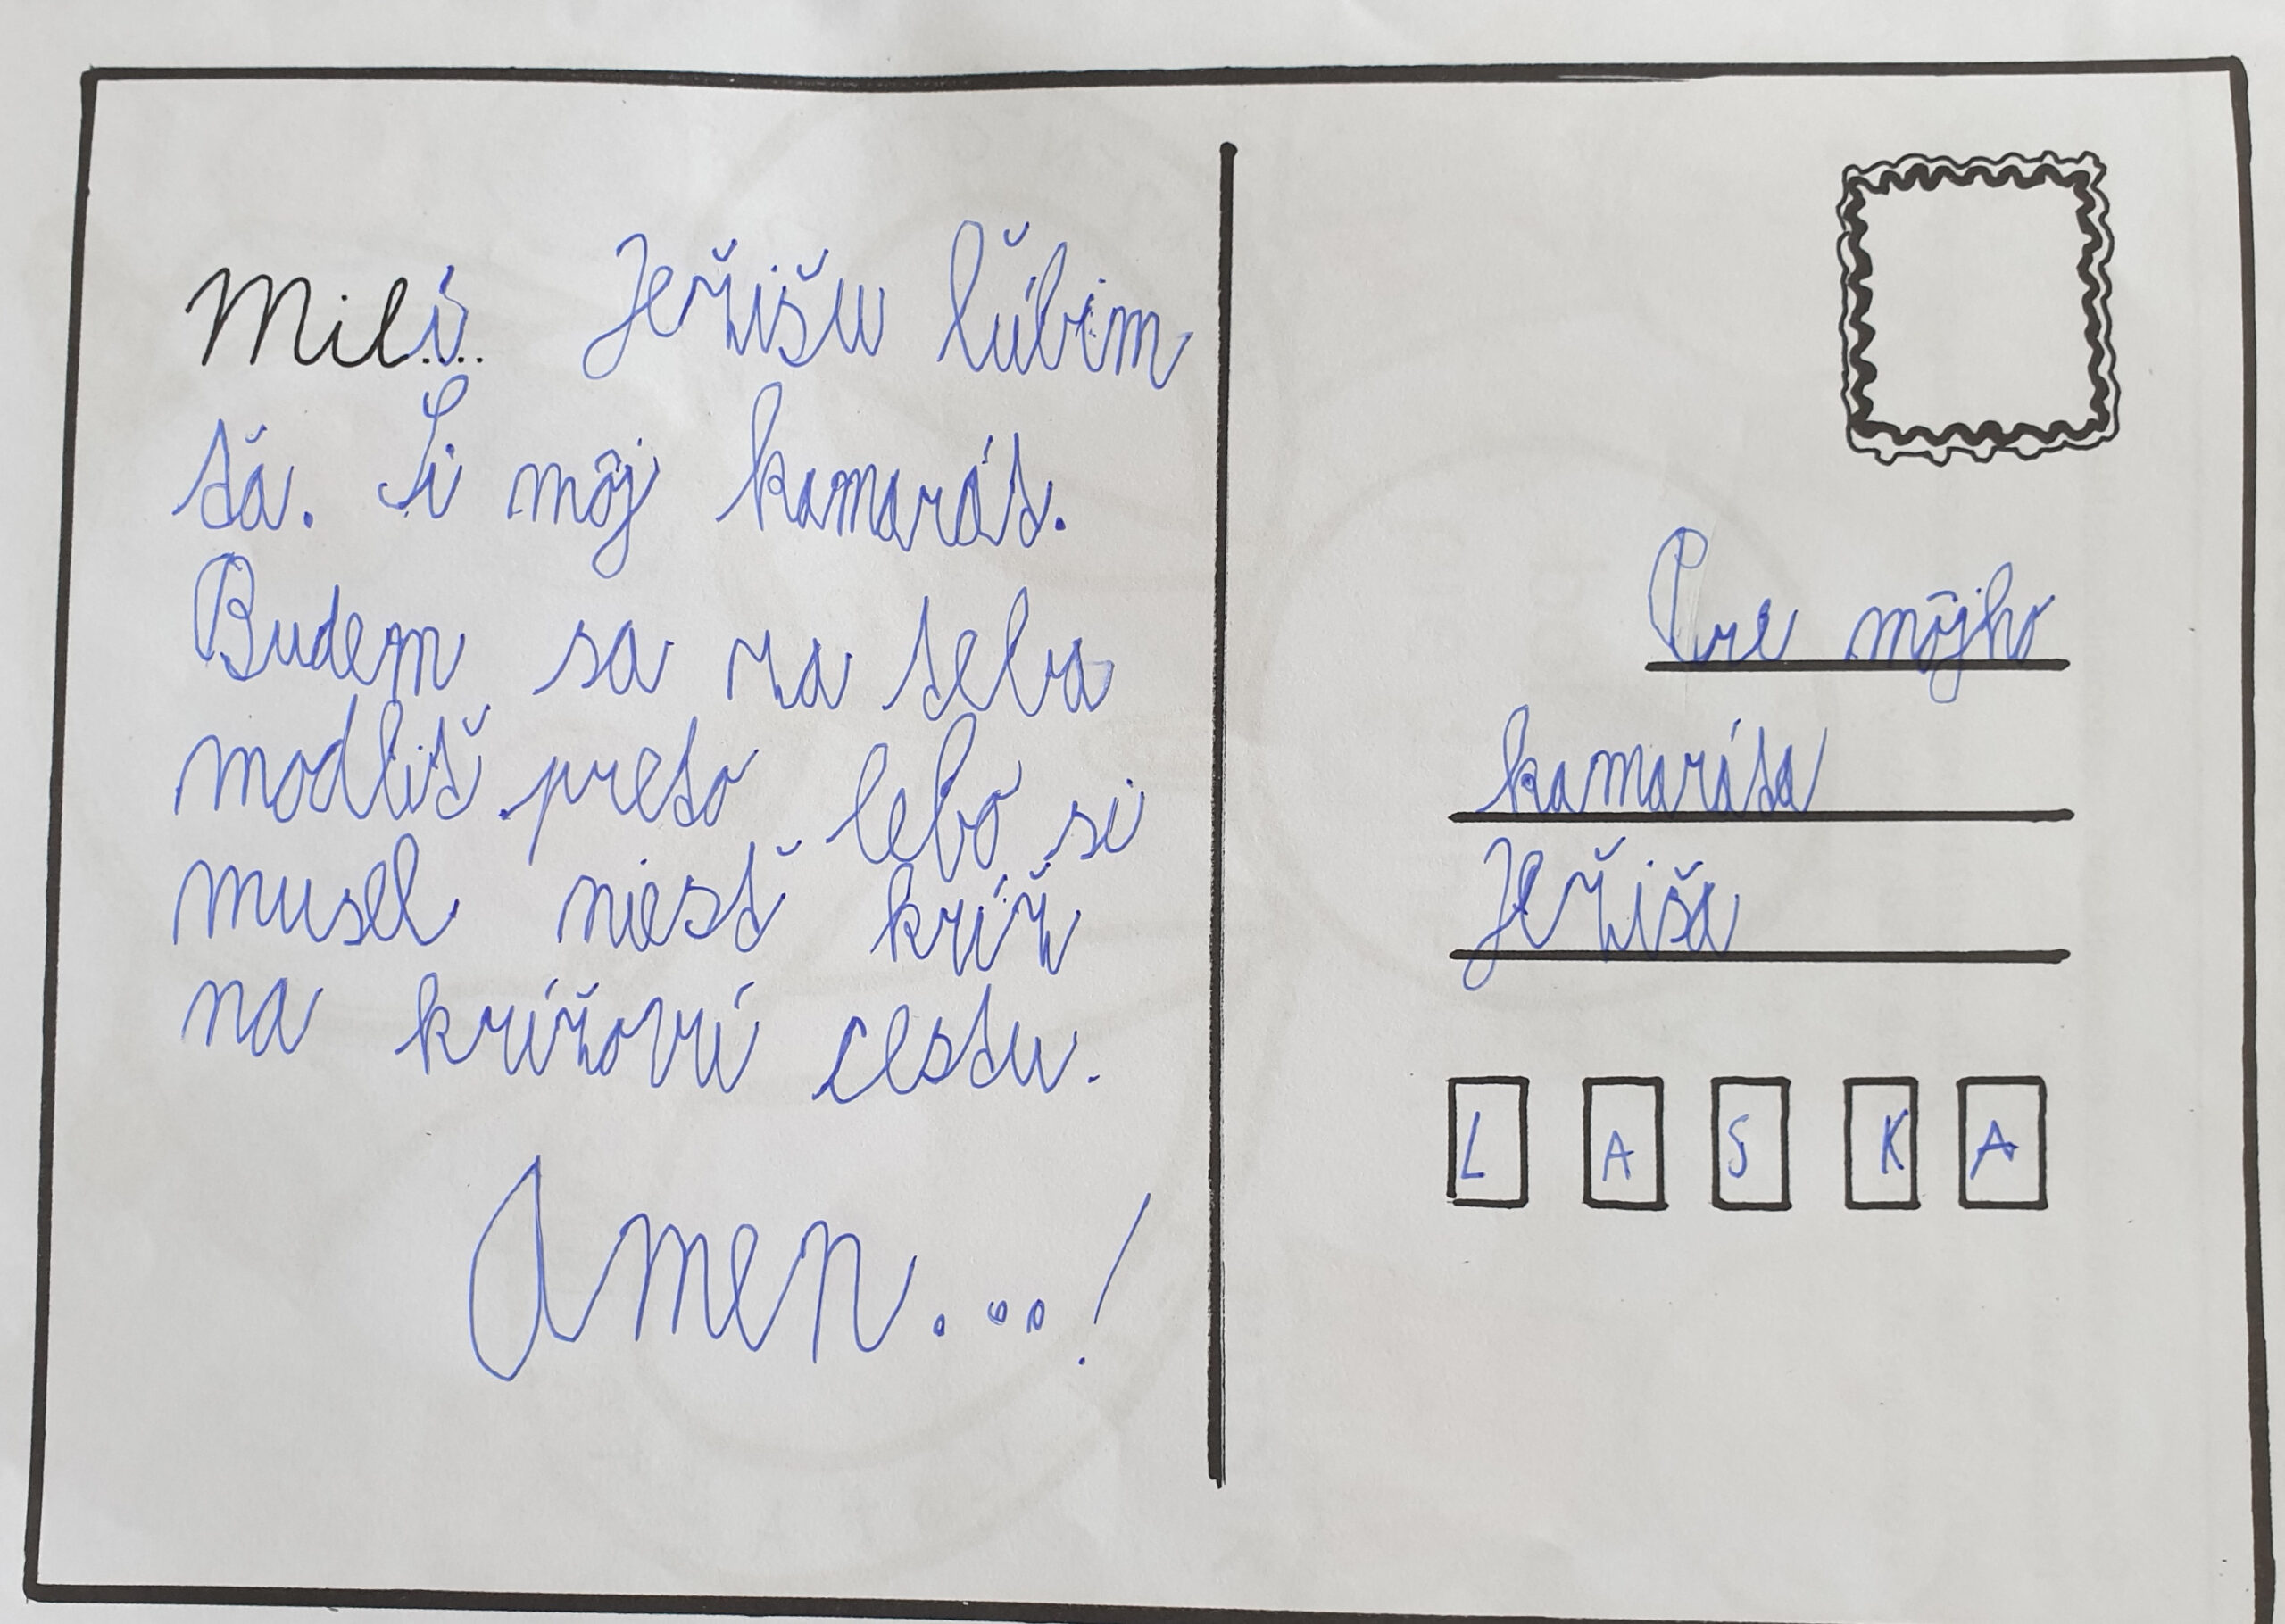 Milí Ježišu ľúbim
ťa. Si môj kamarát.
Budem sa za teba
modliť preto lebo si
musel niesť kríž
na krížovú cestu.
Amen...!
Pre môjho
kamaráta
Ježiša
L A S K A